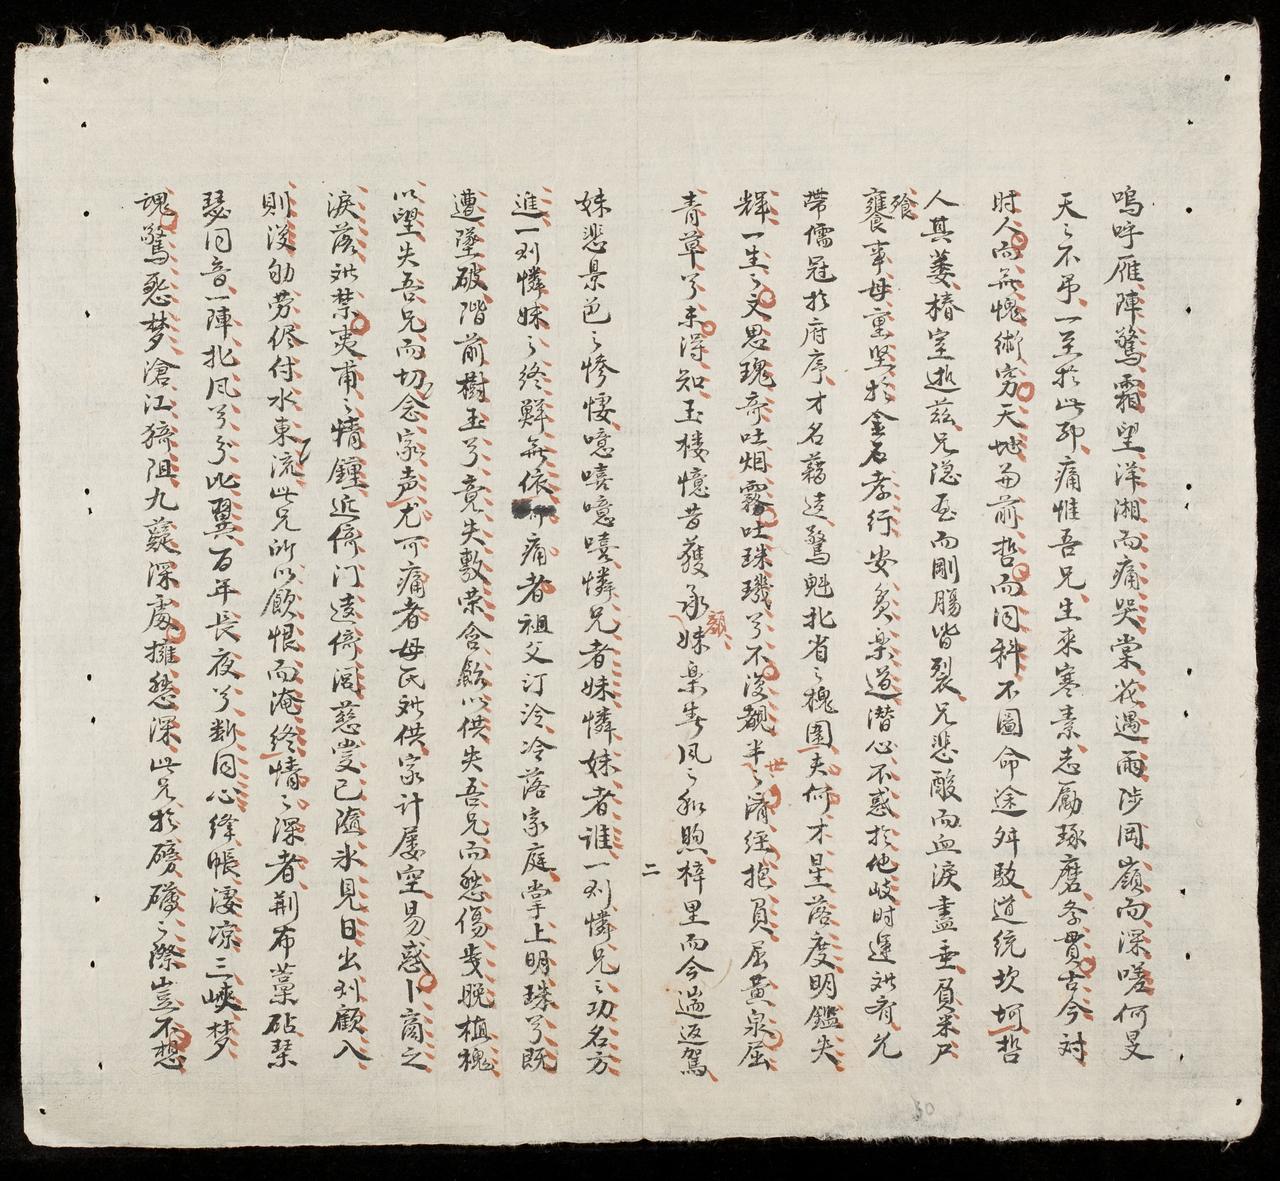 嗚呼雁陣驚霜望洋湘而痛哭棠花遇雨陟岡嶺而深嗟何旻
天之不吊一至於此耶痛惟吾兄生來寒素志勵琢磨冬貫古今対
时人而無愧術窮天地前哲而同科不圖命途舛駁道統坎坷哲
人其萎椿室逝兹兄隐而剛腸皆裂兄悲酸而血淚盡垂負米尸
饔飱事母重坚於金石孝行安貧楽道潜心不惑於他岐时運
帶儒冠於府序才名藉遠驚魁北省之槐囿夫何才星落度明鑑失
輝一生之文思瑰奇吐烟霧吐珠璣兮不復覩半世之滑經抱負屈黄泉屈
青草兮未得知玉楼憶昔獲承妹顏泉春风之和煦梓里而今遄返駕
二
妹悲景色之惨悽噫嘻噫嘻憐兄者妹憐妹者誰一则憐兄之功名方
進一则憐妹之终鮮無依可痛者祖父汀泠冷落家庭掌上明珠兮既
遭墜破階前樹玉兮竟失敷荣含飴以供失吾兄而愁傷歲晚植槐
以望失吾兄而切念家声尤可痛者母氏供家計屡空易惑卜商之
淚落禁夷甫之情鍾近倚门遠倚閭慈愛已隨氷見日出则顧入
則復劬劳侭付水東流此兄所以飲恨而淹终情之深者荆布藁砧琹
瑟同音一陣北风兮分比翼百年長夜兮断同心绛帳凄凉三峽梦
魂驚愁梦滄江猗阻九嶷深處擁愁深此兄於磅礴之際豈不想